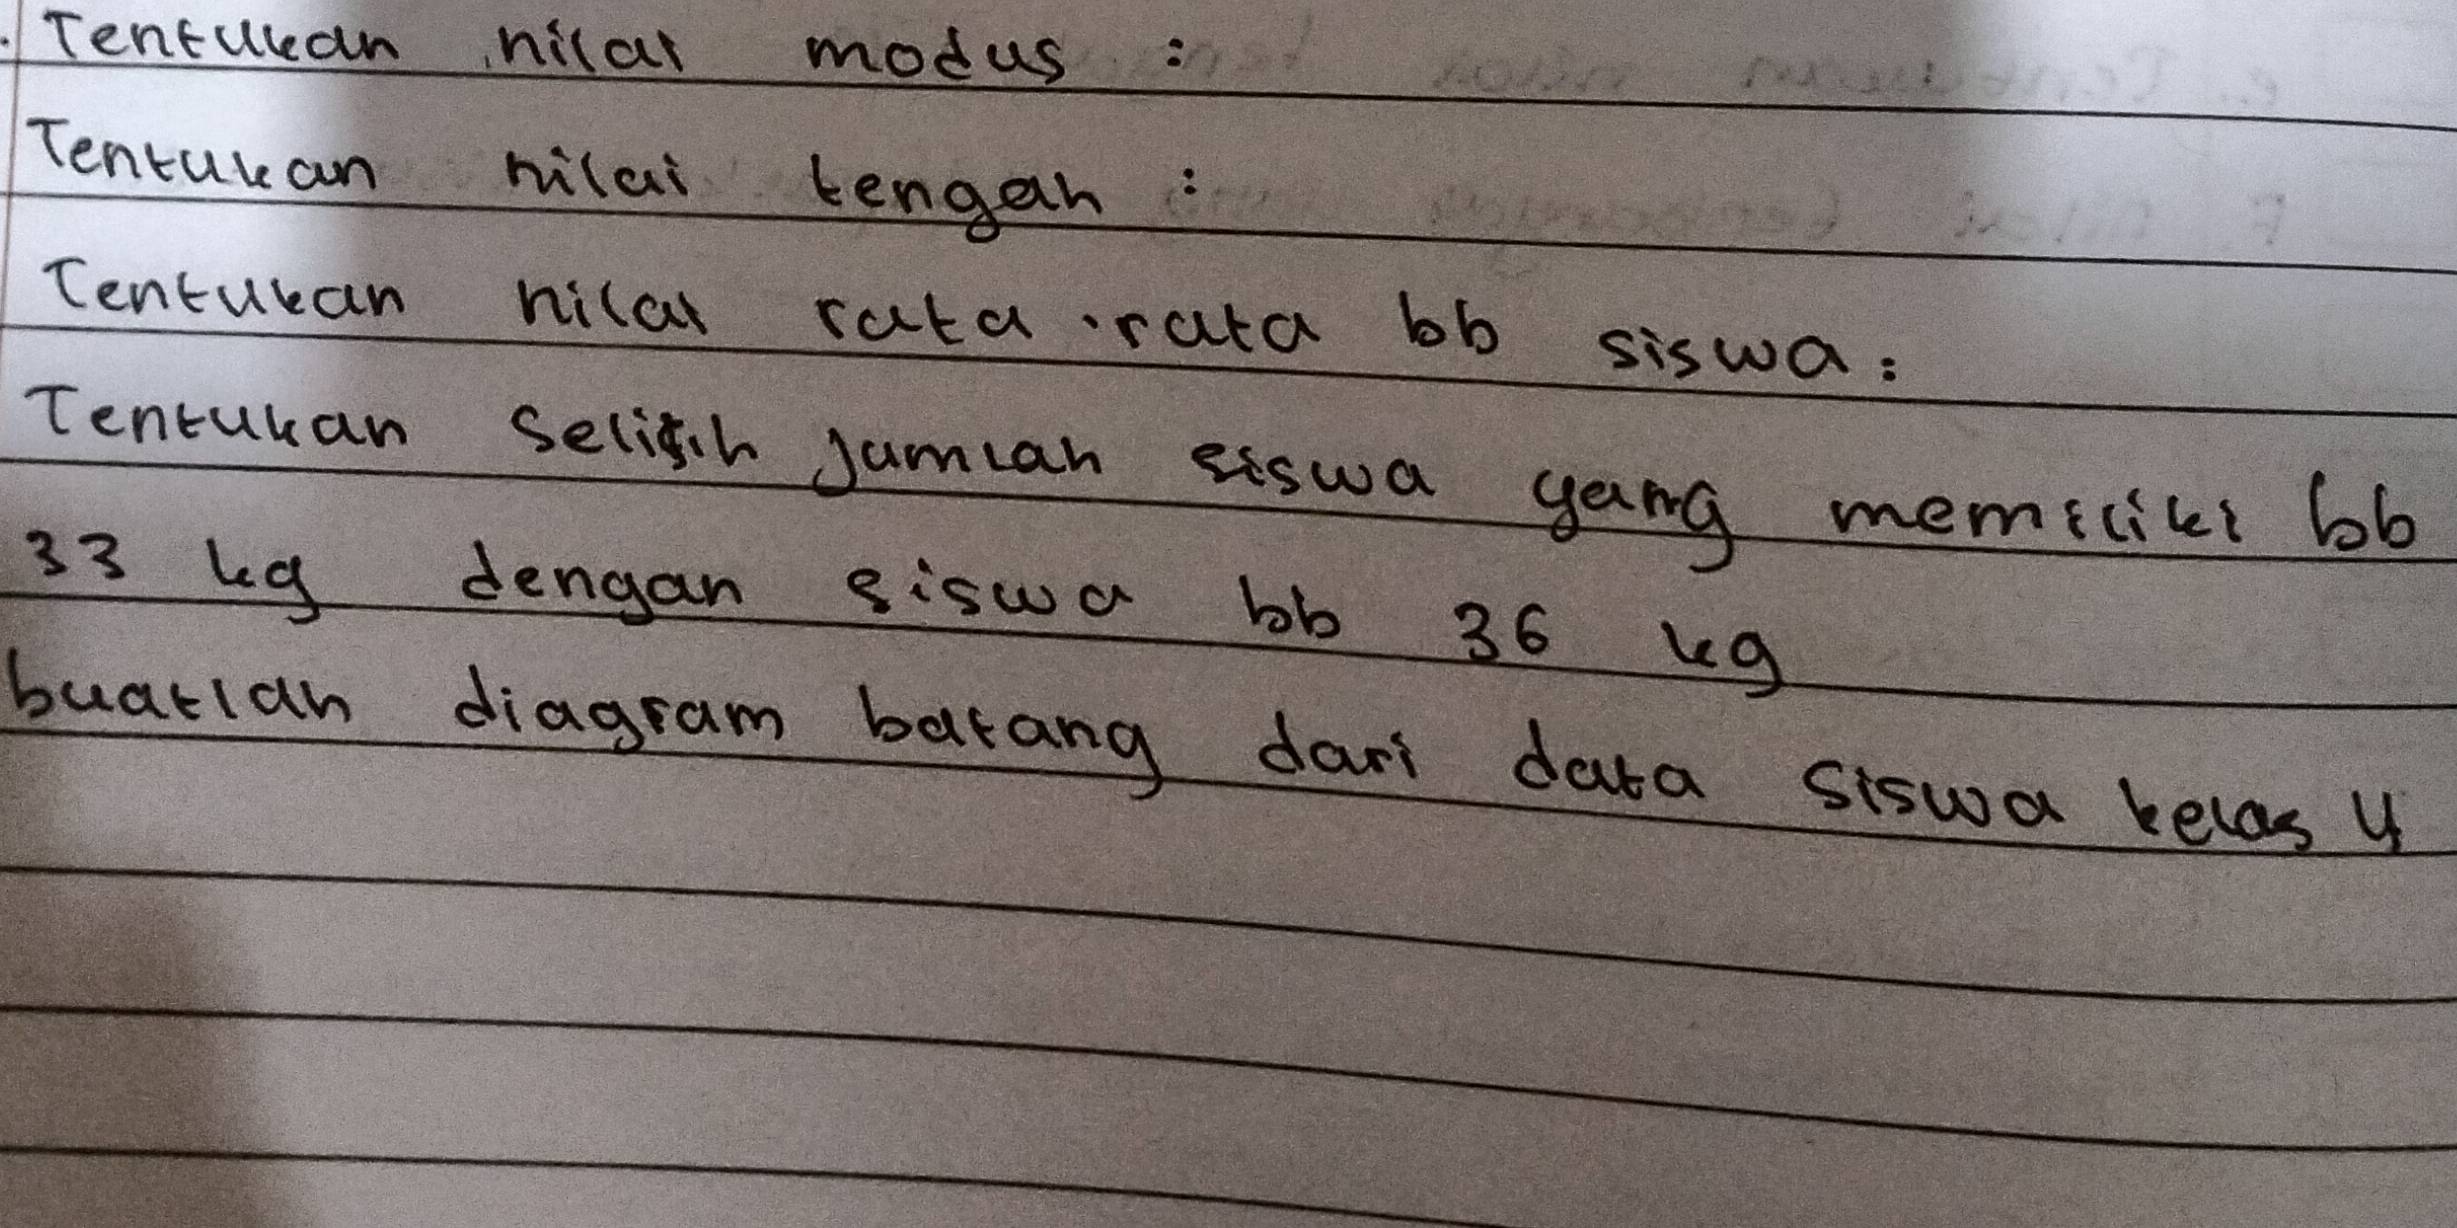 Tentukan nilai modus :
Tentukan nilai tengah :
Tentukan nilai rata-rata bb siswa :
Tentukan selisih jumlah siswa yang memiliki bb
33 kg dengan siswa bb 36 kg
buatlah diagram batang dari data siswa kelas 4